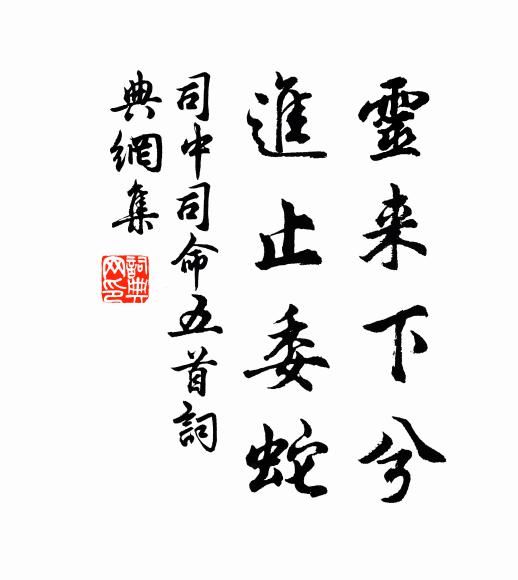 靈来下兮
進止委蛇
司中司命五首詞
典網集
詞典網印